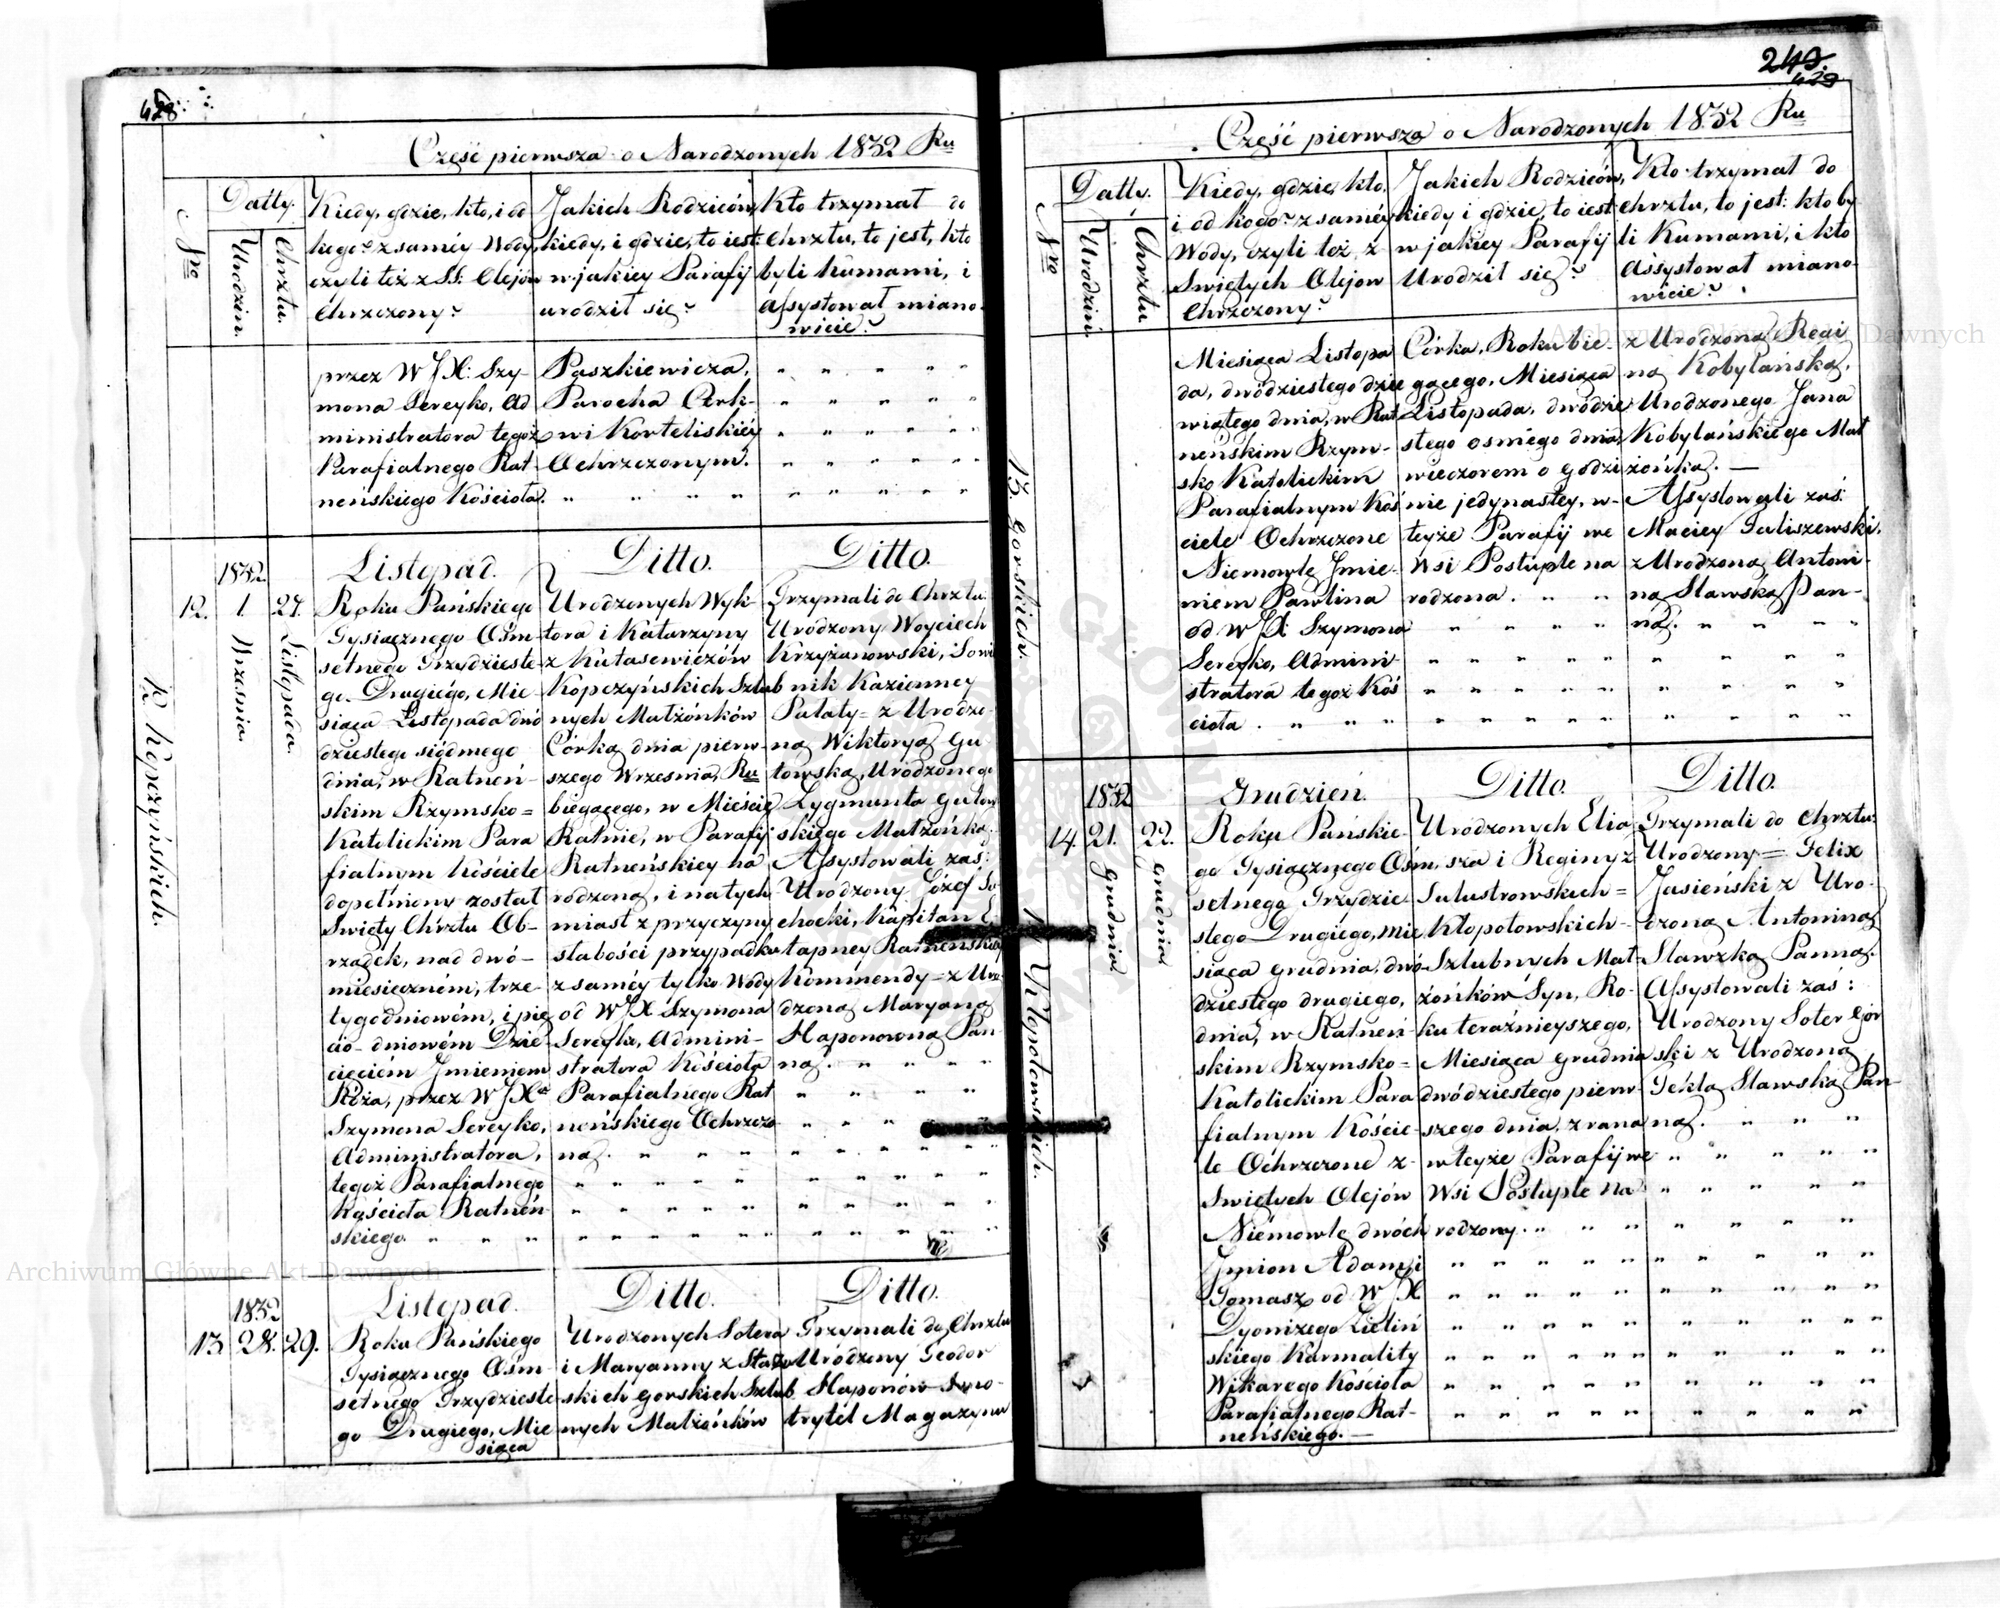 428.
Część pierwsza o Narodzonych 1832 Ru
Nro
Datty.
Urodzin.
Chrztu.
Kiedy, gdzie, kto, i od
kogo? z saméy Wody,
czyli też z SS: Olejów
Chrzczony?
Jakich Rodziców,
kiedy, i gdzie, to iest:
w jakiey Parafij
urodził się?
Kto trzymał do
Chrztu, to jest, kto
byli Kumami, i
Assystował miano-
wicie?
przez WJX: Szy-
mona Sereyko, Ad
ministratora tegoż
Parafialnego Rat-
neńskiego Kościoła.
Paszkiewicza,
Parocha Cerk-
wi Korteliskiéy
Ochrzczonym.
12. Kopczyńskich.
1832.
12.
1.
Września.
27.
Listopada.
Listopad.
Roku Pańskiego
Tysiącznego Ośm
setnego Trzydzieste
go Drugiégo, Mie
siąca Listopada dwó
dziestego siódmego
dnia, w Ratneń-
skim Rzymsko=
Katolickim Para
fialnym Kościele
dopełniony został
Swięty Chrztu Ob-
rządek, nad dwó-
miesięczném, trze-
tygodniowém, i pię
cio- dniowém Dzie-
cięciém Jmieniem
Róża, przez WJXa
Szymona Sereyko,
Administratora,
tegoż Parafialnego
Kościoła Ratneń-
skiego.
Ditto.
Urodzonych Wyk-
tora i Katarzyny
z Kutasewiczów
Kopczyńskich Szlub
nych Małżonków
Córka, dnia pierw-
szego Wrzesnia, Ru
biegącego, w Mieście
Ratnie, w Parafij
Ratneńskiey na
rodzona, i natych-
miast z przyczyny
słabości przypadku
z saméy tylko Wody
od WJX Szymona
Sereyki, Admini-
stratora Kościoła
Parafialnego Rat
neńskiego Ochrzczo
na.
Ditto.
Trzymali do Chrztu
Urodzony Woyciech
Krzyżanowski, Sowie
nik Kazienney
Pałaty= z Urodzo-
ną Wiktoryą Gu
towską, Urodzonego
Zygmunta Gutow
skiego Małżonką.
Assystowali zaś:
Urodzony Józef So
chocki, Kapitan E
tapney Ratneńskiey
Kommendy= z Uro
dzoną Maryanną
Haponowną Pan
ną.
1832
13
28.
29.
Listopad.
Roku Pańskiego
Tysiącznego Ośm-
setnego Trzydzieste
go Drugiego, Mie
siąca
Ditto.
Urodzonych Sotera
i Maryanny z Staw
skich Gorskich Szlub
nych Małżonków
Ditto.
Trzymali do Chrztu
Urodzony Teodor
Haponów Smo-
trytel Magazynu
249.
429
Część pierwsza o Narodzonych 1832 Ru
Nro
Datty.
Urodzin.
Chrztu
Kiedy, gdzie, kto,
i od kogo? z saméy
Wody, czyli też z
Swiętych Olejow
Chrzczony?
Jakich Rodziców,
kiedy i gdzie, to iest
w jakiey Parafij
Urodził się?
Kto trzymał do
Chrztu, to jest: kto by
li Kumami, i kto
Assystował miano-
wicie?
13. Gorskich.
Miesiąca Listopa
da, dwódziestego dzie
wiątego dnia, w Rat
neńskim Rzym-
sko Katolickim
Parafialnym Koś
ciele Ochrzczone
Niemowle Jmie-
niem Pawlina
od WJX Szymona
Sereyko, Admini-
stratora tegoż Koś
cioła.
Córka, Roku bie-
gącego, Miesiąca
Listopada, dwódzie
stego osmego dnia
wieczorem o godzi
nie jedynastey, w-
teyże Parafij we
Wsi Postuple na
rodzona.
z Urodzoną Regi
ną Kobylańską,
Urodzonego Jana
Kobylańskiego Mał
żońką.—
Assystowali zaś:
Maciey Galiszewski,
z Urodzoną Antoni-
ną Sławską Pan-
ną.
14. Kłopotowskich.
1832
14.
21.
Grudnia
22.
Grudnia
Grudzień.
Roku Pańskie-
go Tysiącznego Ośm,
setnego Trzydzie
stego Drugiego, Mie
siąca Grudnia, dwó-
dziestego drugiego,
dnia, w Ratneń-
skim Rzymsko=
Katolickim Para
fialnym Koście-
le Ochrzczone z-
Swiętych Olejów
Niémowle dwóch
Jmion Adam i
Tomasz od WJX
Dyonizego Zieliń
skiego Karmality
Wikarego Kościoła
Parafialnego Rat-
neńskiego.—
Ditto.
Urodzonych Elia
sza i Reginy z
Sulustrowskich=
Kłopotowskich-
Szlubnych Mał-
żońków Syn, Ro-
ku teraźnieyszego,
Miesiąca Grudnia
dwódziestego pierw-
szego dnia, z rana
w teyże Parafij we
Wsi Postuple na
rodzony.
Ditto.
Trzymali do Chrztu:
Urodzony= Felix
Jasieński z Uro-
dzoną Antoniną
Sławzką Panną.
Assystowali zaś:
Urodzony Soter Gór
ski z Urodzoną
Teklą Sławską Pan-
ną.
Archiwum Główne Akt Dawnych
Archiwum Główne Akt Dawnych